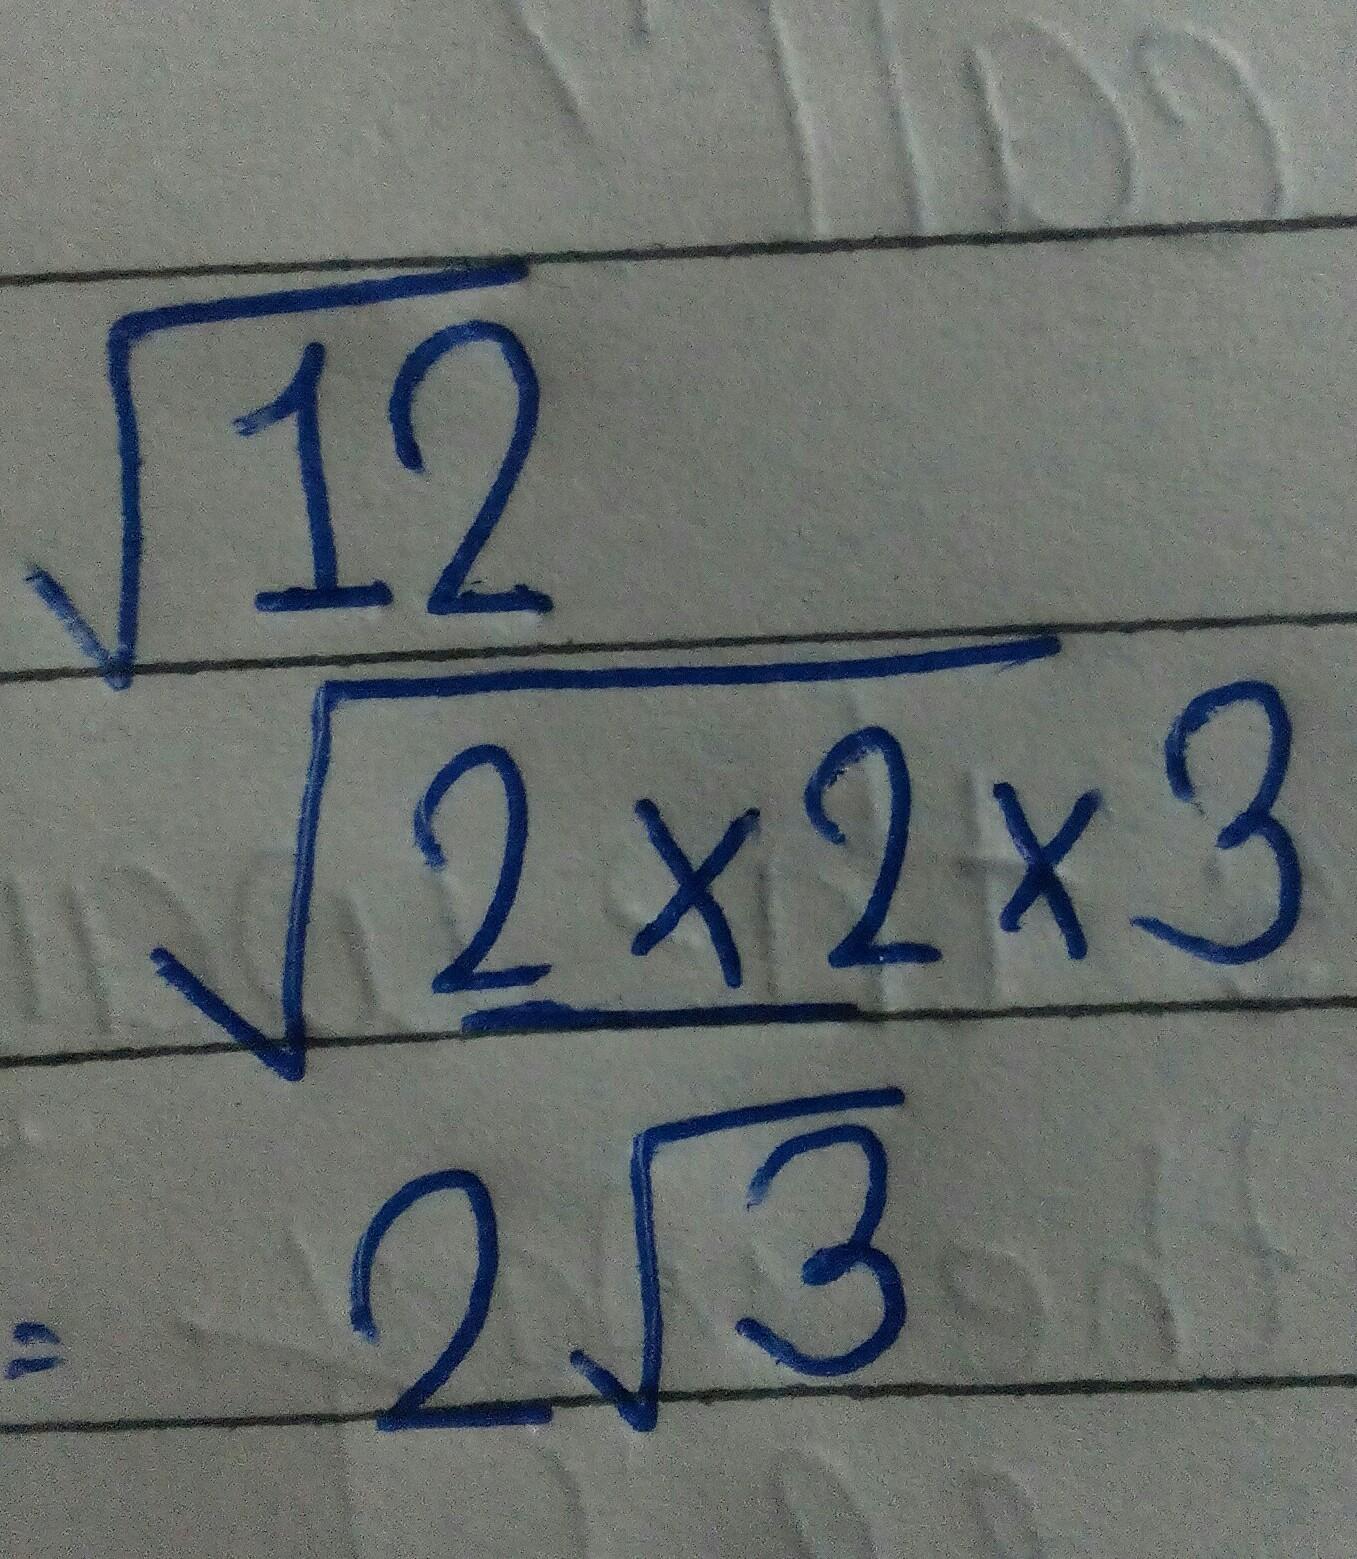 √12
√2×2×3
= 2√3